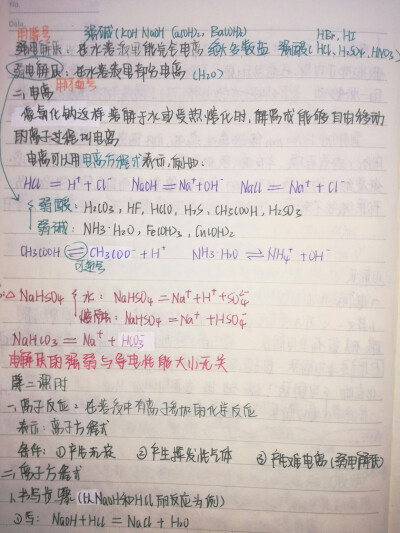 用等号 强碱(KOH NaOH Ca(OH)₂, Ba(OH)₂) HBr, HI
强电解质：在水溶液里能完全电离 绝大多数盐 强酸(HCl, H₂SO₄, HNO₃)
弱电解质：在水溶液里部分电离 (H₂O)
用可逆号
二、电离
像氯化钠这样溶解于水或受热熔化时，解离成能够自由移动
的离子过程叫电离
电离可以用电离方程式表示，例如：
HCl = H⁺ + Cl⁻ NaOH = Na⁺ + OH⁻ NaCl = Na⁺ + Cl⁻
弱酸：H₂CO₃, HF, HClO, H₂S, CH₃COOH, H₂SO₃
弱碱：NH₃·H₂O, Fe(OH)₃, Cu(OH)₂
CH₃COOH ⇌ CH₃COO⁻ + H⁺ NH₃·H₂O ⇌ NH₄⁺ + OH⁻
可逆号
△ NaHSO₄ { 水：NaHSO₄ = Na⁺ + H⁺ + SO₄²⁻
熔融：NaHSO₄ = Na⁺ + HSO₄⁻
NaHCO₃ = Na⁺ + HCO₃⁻
电解质的强弱与导电性能大小无关
第二课时
一、离子反应：在溶液中有离子参加的化学反应
表示：离子方程式
条件：①产生沉淀 ②产生挥发性气体 ③产生难电离(弱电解质)
二、离子方程式
1.书写步骤(以NaOH和HCl的反应为例)
①写：NaOH + HCl = NaCl + H₂O